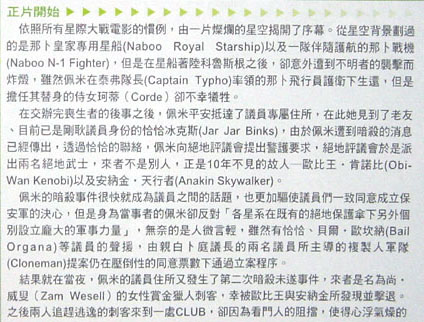 正片開始
依照所有星際大戰電影的慣例，由一片燦爛的星空揭開了序幕。從星空背景劃過
的是那卜皇家專用星船(Naboo Royal Starship)以及一隊伴隨護航的那卜戰機
(Naboo N-1 Fighter)，但是在星船著陸科魯斯根之後，卻意外遭到不明者的襲擊而
炸毀，雖然佩米在泰弗隊長(Captain Typho)率領的那卜飛行員護衛下生還，但是
擔任其替身的侍女珂蒂（Corde）卻不幸犧牲。
在交辦完喪生者的後事之後，佩米平安抵達了議員專屬住所，在此她見到了老友
、目前已是剛耿議員身份的恰恰冰克斯(Jar Jar Binks)，由於佩米遭到暗殺的消息
已經傳出，透過恰恰的聯絡，佩米向絕地評議會提出警護要求，絕地評議會於是派
出兩名絕地武士，來者不是別人，正是10年不見的故人─歐比王‧肯諾比(Obi-
Wan Kenobi)以及安納金‧天行者(Anakin Skywalker)。
佩米的暗殺事件很快就成為議員之間的話題，也更加驅使議員們一致同意成立保
安軍的決心，但是身為當事者的佩米卻反對「各星系在既有的絕地保護傘下另外個
別設立龐大的軍事力量」，無奈的是人微言輕，雖然有恰恰、貝爾‧歐坎納(Bail
Organa)等議員的聲援，由親白卜庭議長的兩名議員所主導的複製人軍隊
(Cloneman)提案仍在壓倒性的同意票數下通過立案程序。
結果就在當夜，佩米的議員住所又發生了第二次暗殺未遂事件，來者是名為尚‧
威叟（Zam Wesell）的女性賞金獵人刺客，幸被歐比王與安納金所發現並擊退。
之後兩人追趕逃逸的刺客來到一處CLUB，卻因為看門人的阻擋，使得心浮氣燥的